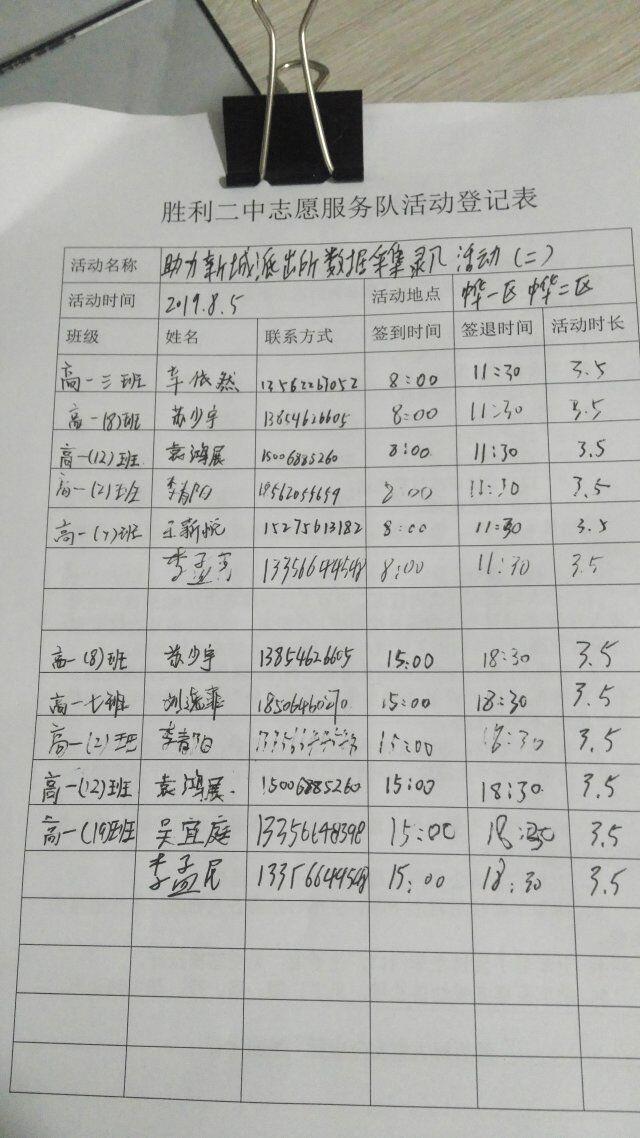 胜利二中志愿服务队活动登记表
活动名称 助力新城派出所数据采集录入活动(二)
活动时间 2019.8.5 活动地点 中华一区 中华二区
班级 姓名 联系方式 签到时间 签退时间 活动时长
高一三班 依然 13562267052 8:00 11:30 3.5
高一(8)班 苏少宇 13854626605 8:00 11:30 3.5
高一(12)班 袁鸿展 15006885260 8:00 11:30 3.5
高一(2)班 李春阳 8:00 11:30 3.5
高一(7)班 王新悦 15275613182 8:00 11:30 3.5
李孟 13356644548 8:00 11:30 3.5
高一(8)班 苏少宇 13854626605 15:00 18:30 3.5
高一七班 刘逸菲 18506460270 15:00 18:30 3.5
高一(2)班 李春阳 15:00 18:30 3.5
高一(12)班 袁鸿展 15006885260 15:00 18:30 3.5
高一(19)班 吴宜庭 13356648398 15:00 18:30 3.5
李孟民 13356644548 15:00 18:30 3.5